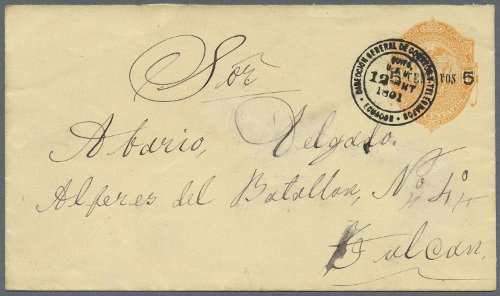 Sór
Abario, Delgado.
Alferes del Batallon, Nº 4º
Tulcan.
DIRECCION GENERAL DE CORREOS Y TELEGRAFOS
QUITO
12
1891
ECUADOR
5